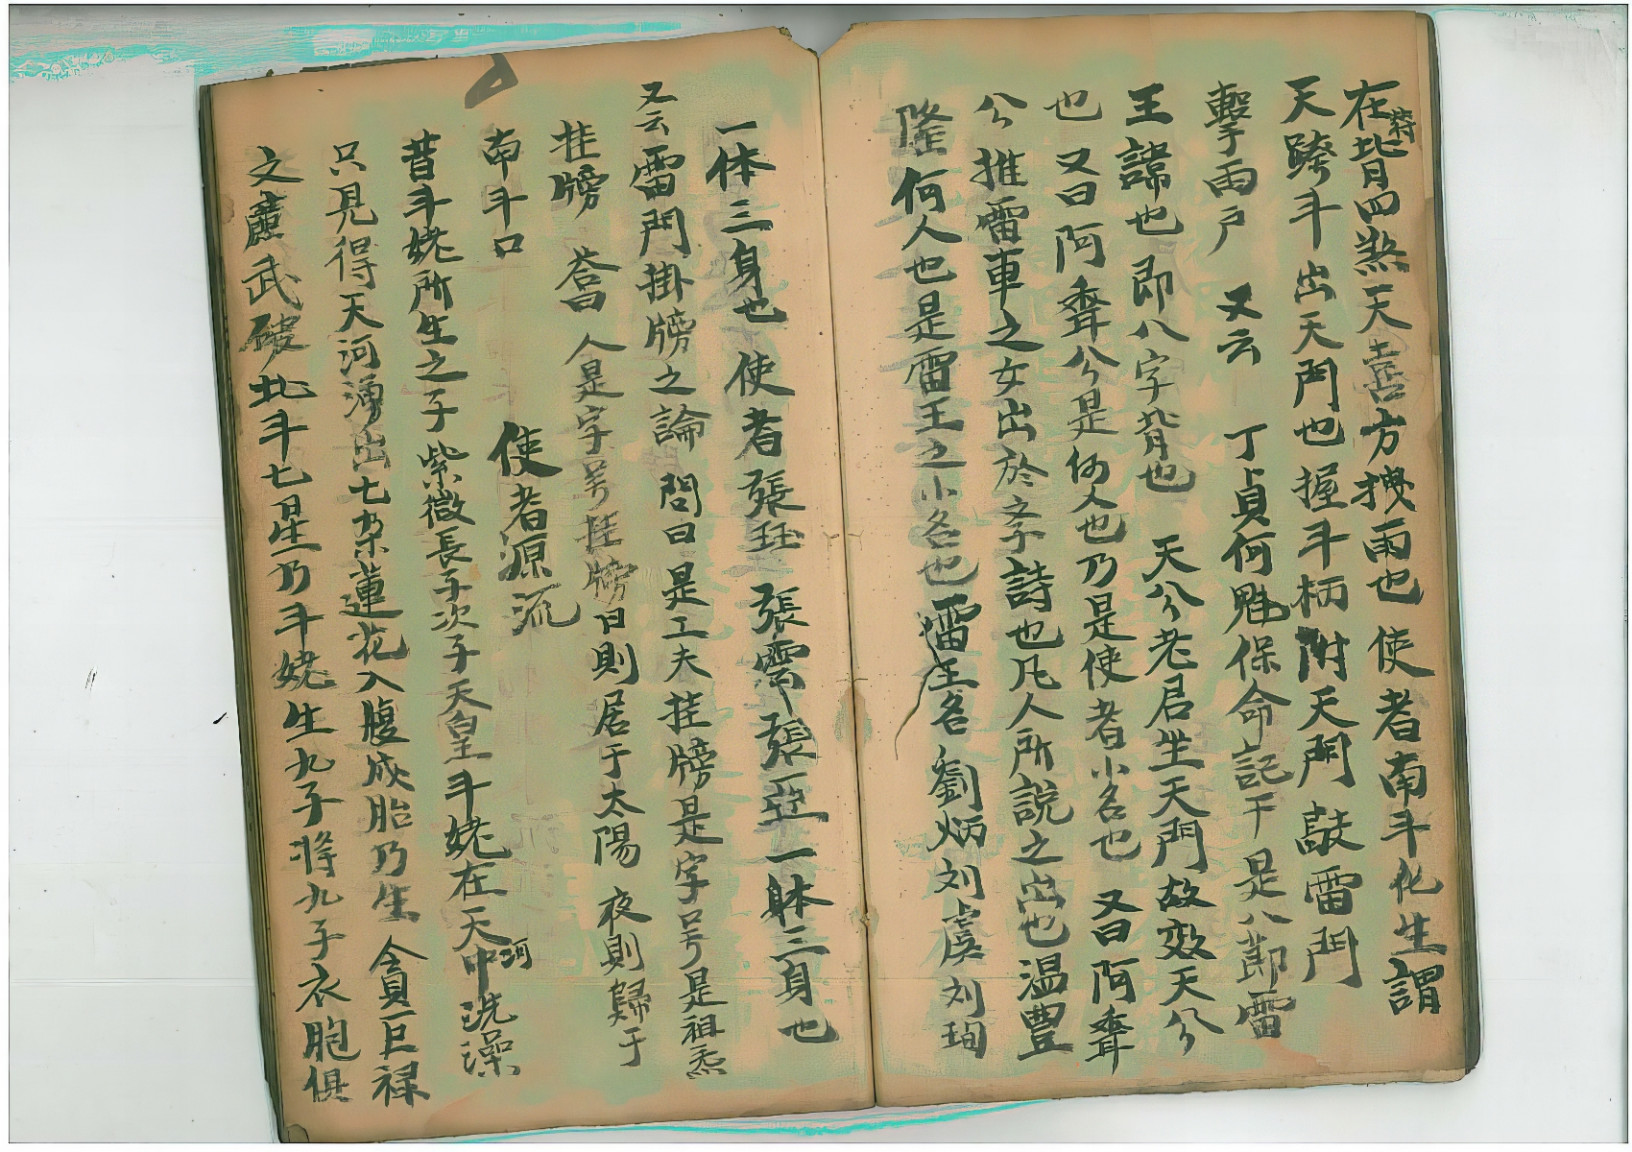 在符背四煞天喜方拽雨也使者南斗化生謂
天跨斗出天門也握斗柄附天門敲雷門
擊雨户 又云 丁貞何魁保命記干是八節雷
王諱也即八字背也 天公老君坐天門故效天公
也又曰阿聋公是何人也乃是使者小名也 又曰阿聋
公推雷車之女出於孝詩也凡人所説之出也温豐
隆何人也是雷王之小名也雷王名劉炳刘虞刘珣
一体三身也 使者張珏 張雲 張亞一躰三身也
又云雷門掛牓之論 問曰是工夫挂牓是字号是祖炁
挂牓 荅曰 人是字号挂牓日則居于太陽 夜則歸于
南斗口 使者源流
昔斗姥所生之子紫微長子次子天皇斗姥在天河中洗澡
只見得天河湧出七朶蓮花入腹成胎乃生 貪巨禄
文廉武破北斗七星乃斗姥生九子将九子衣胞俱